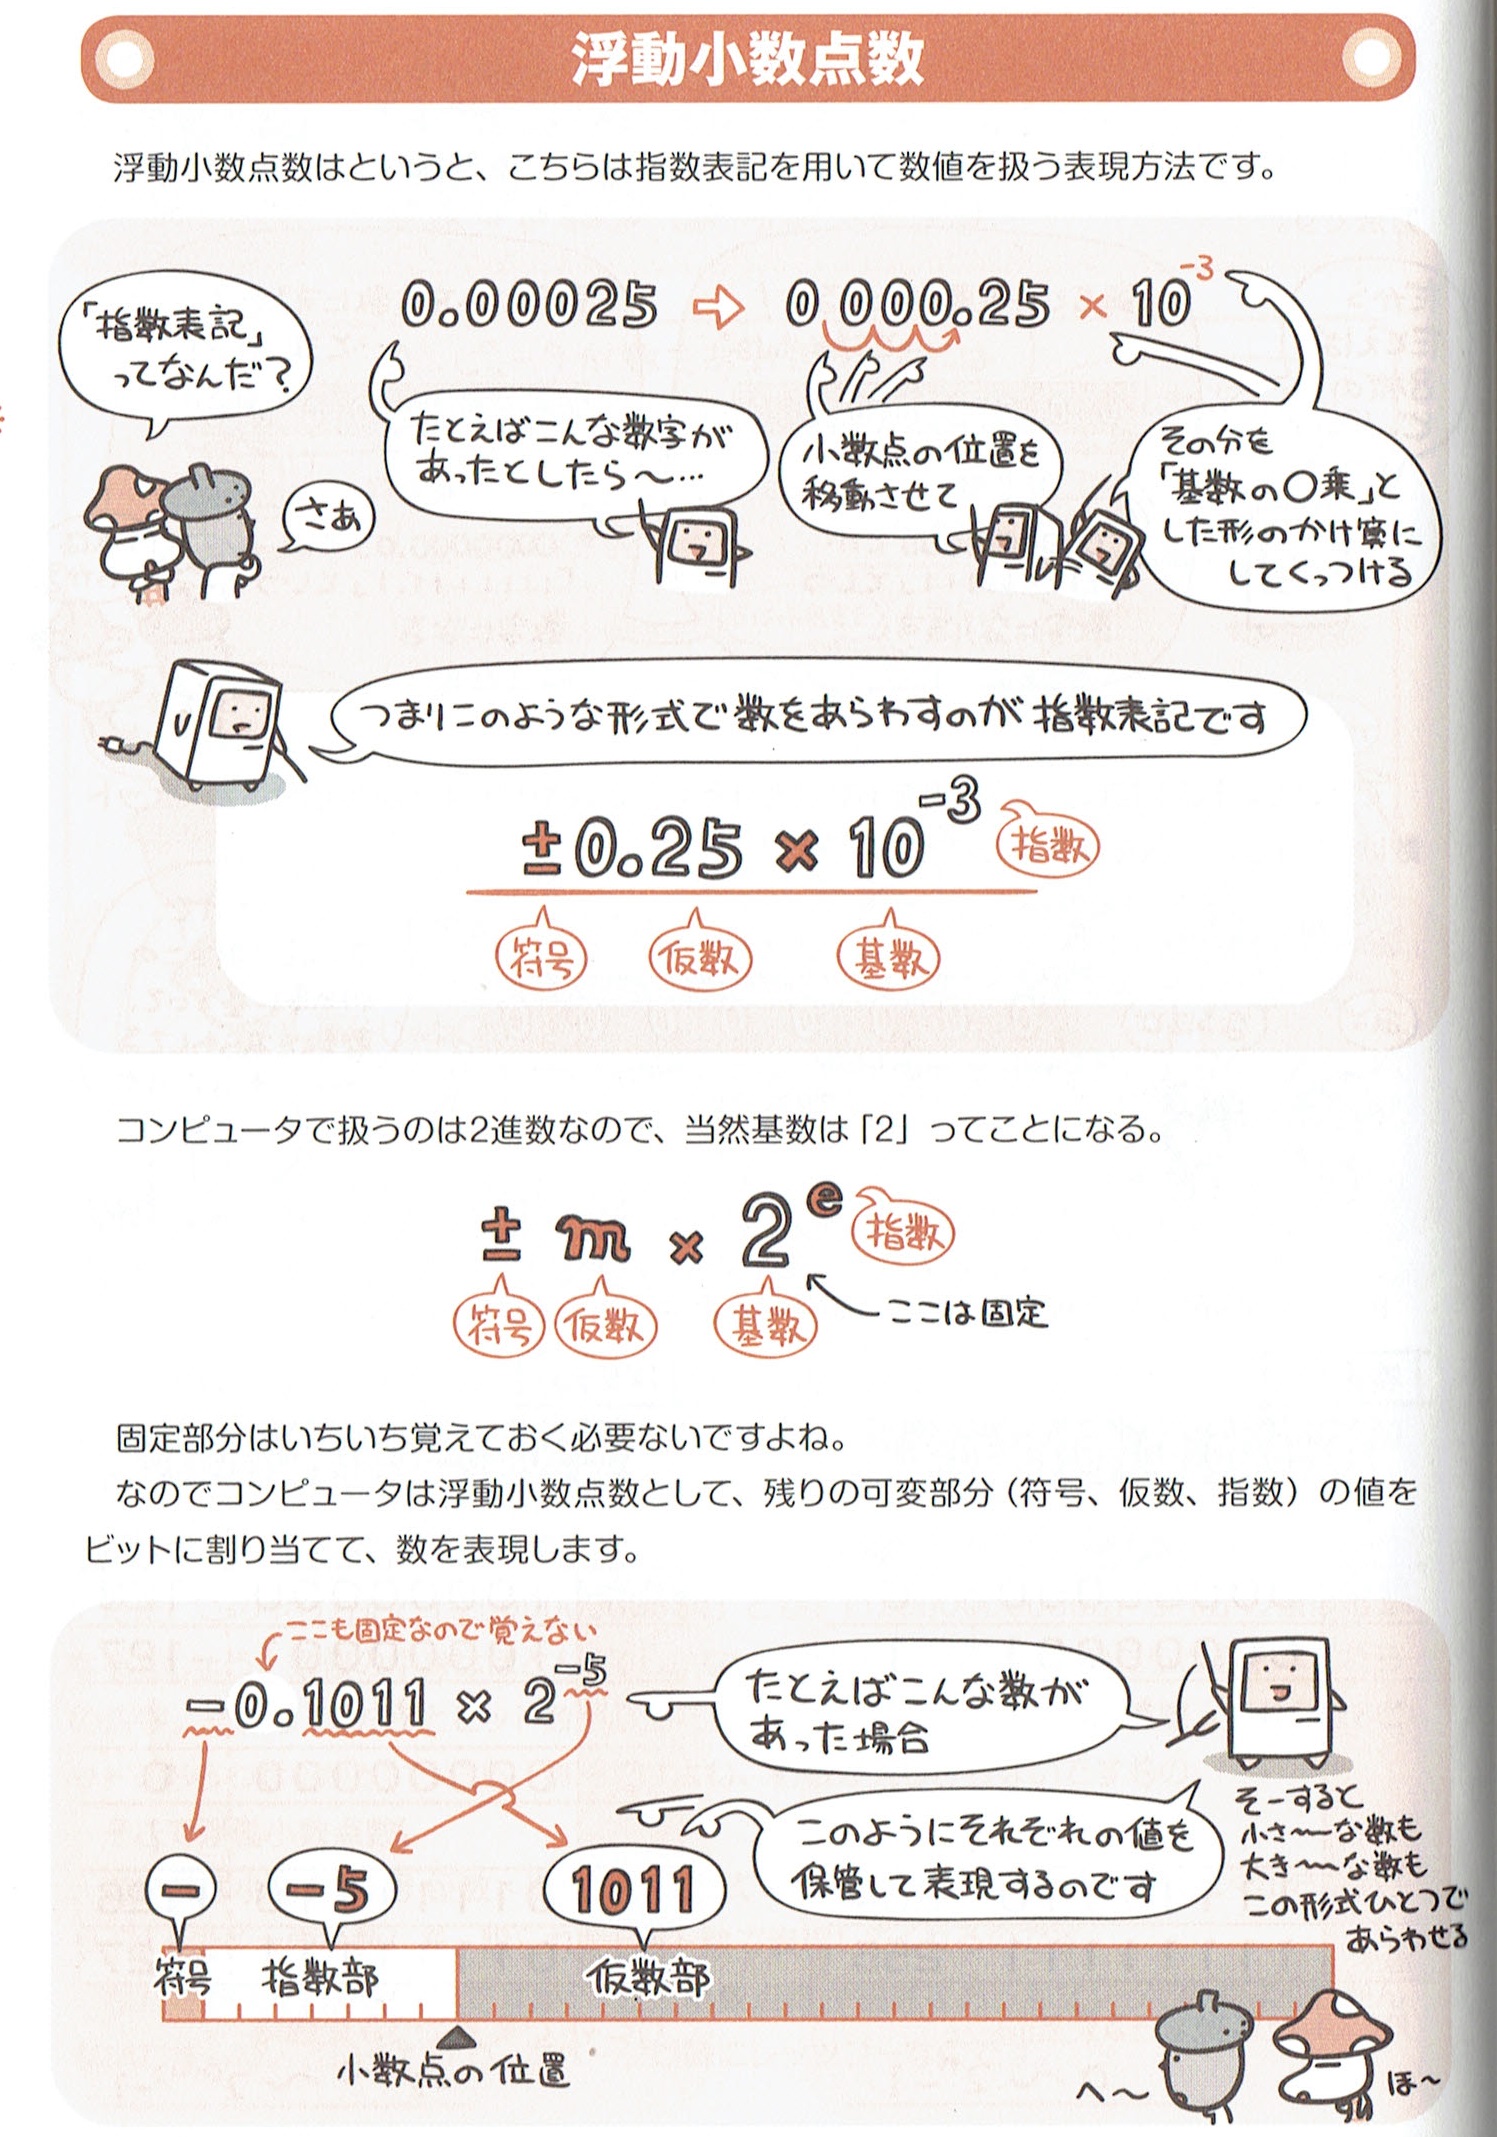 浮動小数点数
浮動小数点数はというと、こちらは指数表記を用いて数値を扱う表現方法です。
「指数表記」
ってなんだ？
さあ
0.00025 ⇨ 0 000.25 × 10⁻³
たとえばこんな数字が
あったとしたら〜…
小数点の位置を
移動させて
その分を
「基数の〇乗」と
した形のかけ算に
してくっつける
つまりこのような形式で数をあらわすのが指数表記です
±0.25 × 10⁻³
指数
符号
仮数
基数
コンピュータで扱うのは2進数なので、当然基数は「2」ってことになる。
± m × 2ᵉ
指数
符号
仮数
基数
ここは固定
固定部分はいちいち覚えておく必要ないですよね。
なのでコンピュータは浮動小数点数として、残りの可変部分（符号、仮数、指数）の値を
ビットに割り当てて、数を表現します。
ここも固定なので覚えない
−0.1011 × 2⁻⁵
たとえばこんな数が
あった場合
このようにそれぞれの値を
保管して表現するのです
そーすると
小さ〜な数も
大き〜な数も
この形式ひとつで
あらわせる
−
−5
1011
符号
指数部
仮数部
小数点の位置
へ〜
ほ〜